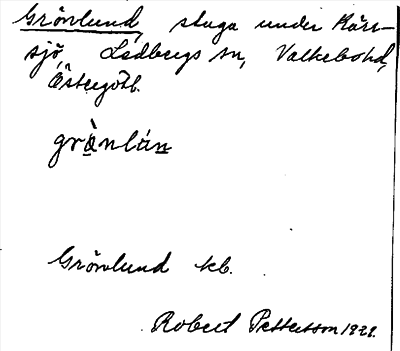 Grönlund, stuga under Kärr-
sjö, Ledbergs sn, Valkebo hd,
Östergötl.
grö̀nlún
Grönlund kb.
Robert Pettersson 1929.